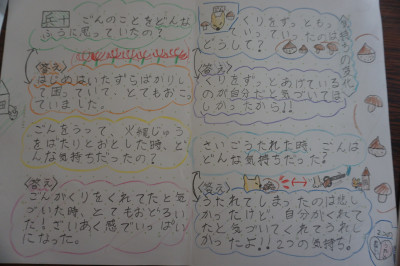 兵十
ごんのことをどんな
ふうに思っていたの？
〈答え〉
はじめはいたずらばかりし
て困っていて、とてもおこっ
ていました。
ごんをうって、火縄じゅう
をばたりとおとした時、ど
んな気持ちだったの？
〈答え〉
ごんがくりをくれてたと気
づいた時、とてもおどろい
た！ざいあく感でいっぱい
になった。
くりをずっともっ
ていっていったのは
どうして？
〈答え〉
くりをずっとあげている
のが自分だと気づいてほ
しかったから！！
さいごうたれた時、ごんは
どんな気持ちだった？
〈答え〉
うたれてしまったのは悲し
かったけど、自分がくれて
たと気づいてくれてうれし
かったよ！！2つの気持ち！
気持ちの変化